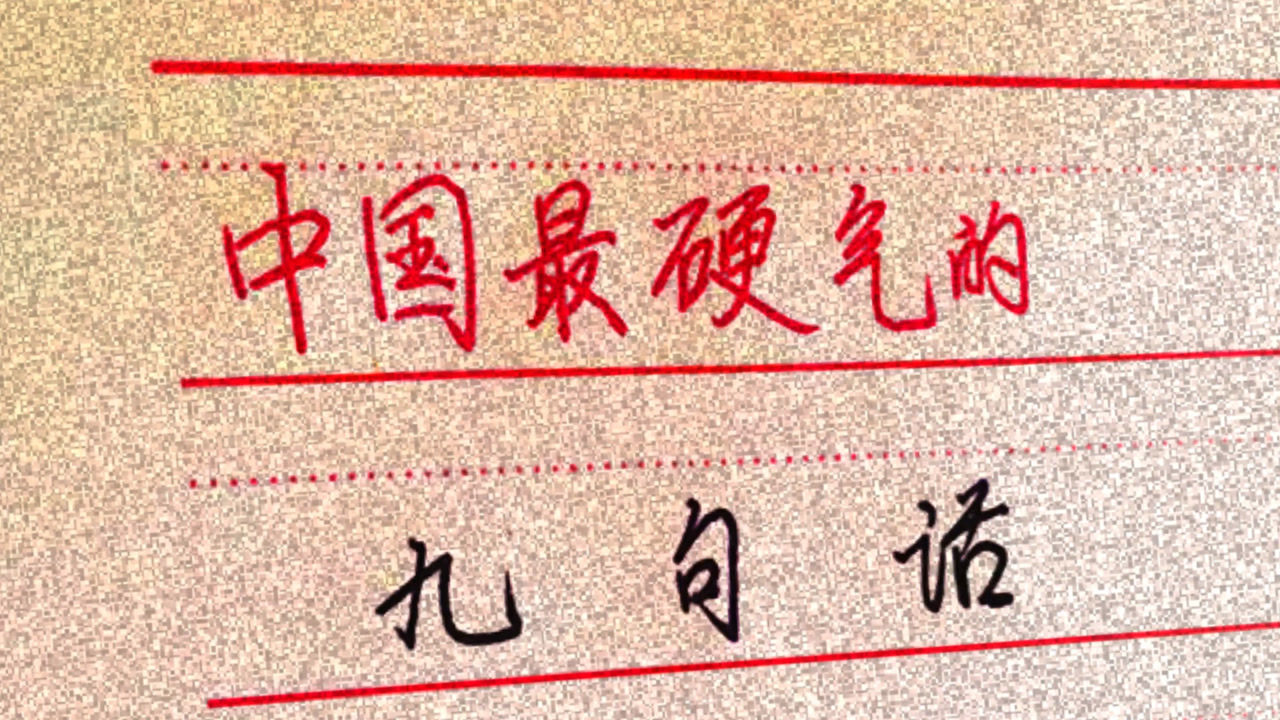 中国最硬气的
九句话